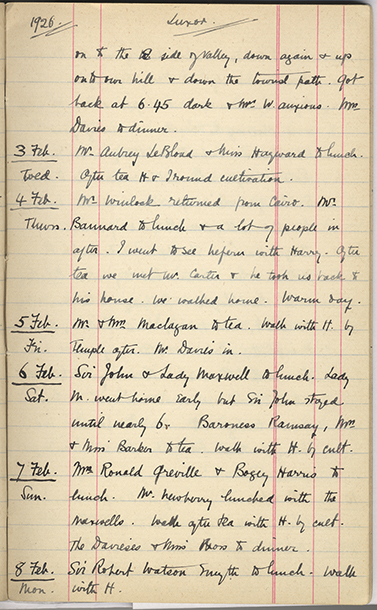 1926. Luxor.
on to the side of Valley, down again & up
onto our hill & down the tourist path. Got
back at 6.45 dark & Mrs W. anxious. Mrs
Davies to dinner.
3 Feb. Mr Aubrey LeBlond & Miss Hayward to lunch.
Wed. After tea H & I round cultivation.
4 Feb. Mr Winlock returned from Cairo. Mr
Thurs. Barnard to lunch & a lot of people in
after. I went to see heperu with Harry. After
tea we met Mr. Carter & he took us back to
his house. We walked home. Warm day.
5 Feb. Mr & Mrs Maclagan to tea. Walk with H. by
Fri. Temple after. Mr Davies in.
6 Feb. Sir John & Lady Maxwell to lunch. Lady
Sat. M. went home early but Sir John stayed
until nearly 6. Baroness Ramsay, Mrs
& Miss Barker to tea. Walk with H. by cult.
7 Feb. Mrs Ronald Greville & Bogey Harris to
Sun. lunch. Mr. Newberry lunched with the
Maxwells. Walk after tea with H. by cult.
The Davieses & Miss to dinner.
8 Feb. Sir Robert Watson Smyth to lunch. Walk
Mon. with H.